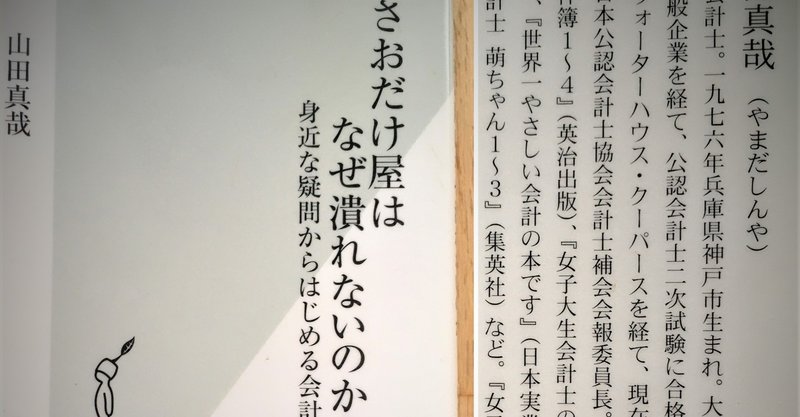 さおだけ屋は
なぜ潰れないのか
身近な疑問からはじめる会計
山田真哉
真哉（やまだしんや）
会計士。一九七六年兵庫県神戸市生まれ。大
般企業を経て、公認会計士二次試験に合格
ウォーターハウス・クーパースを経て、現在
日本公認会計士協会会計士補会会報委員長。
件簿１〜４』（英治出版）、『女子大生会計士の
、『世界一やさしい会計の本です』（日本実業
計士 萌ちゃん１〜３』（集英社）など。『女子